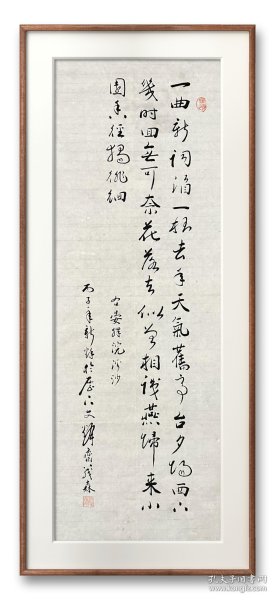 一曲新詞酒一杯去年天氣舊亭台夕陽西下
幾時回無可奈花落去似曾相識燕歸來小
園香徑獨徘徊
晏殊浣溪沙
丙子年新於歷下文輝齋森
孔夫子旧书网